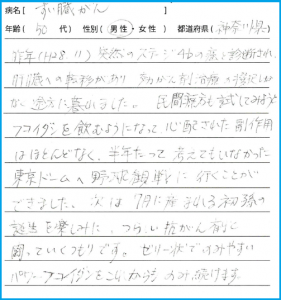 病名[ すい臓がん ]
年齢( 50 代) 性別( 男性・女性 ) 都道府県(神奈川県)
昨年(H28 11) 突然のステージ4bの 診断され
肝臓への転移があり 抗がん剤治療
途方に暮れました。 民間療法も試してみようと
フコイダンを飲むようになって心配された副作用
はほとんどなく、半年たって考えてもいなかった
東京ドームへ野球観戦に行くことが
できました。次は7月に産まれる初孫の
誕生を楽しみに、つらい抗がん剤と
闘っていくつもりです。ゼリー状でのみやすい
フコイダンを のみ続けます